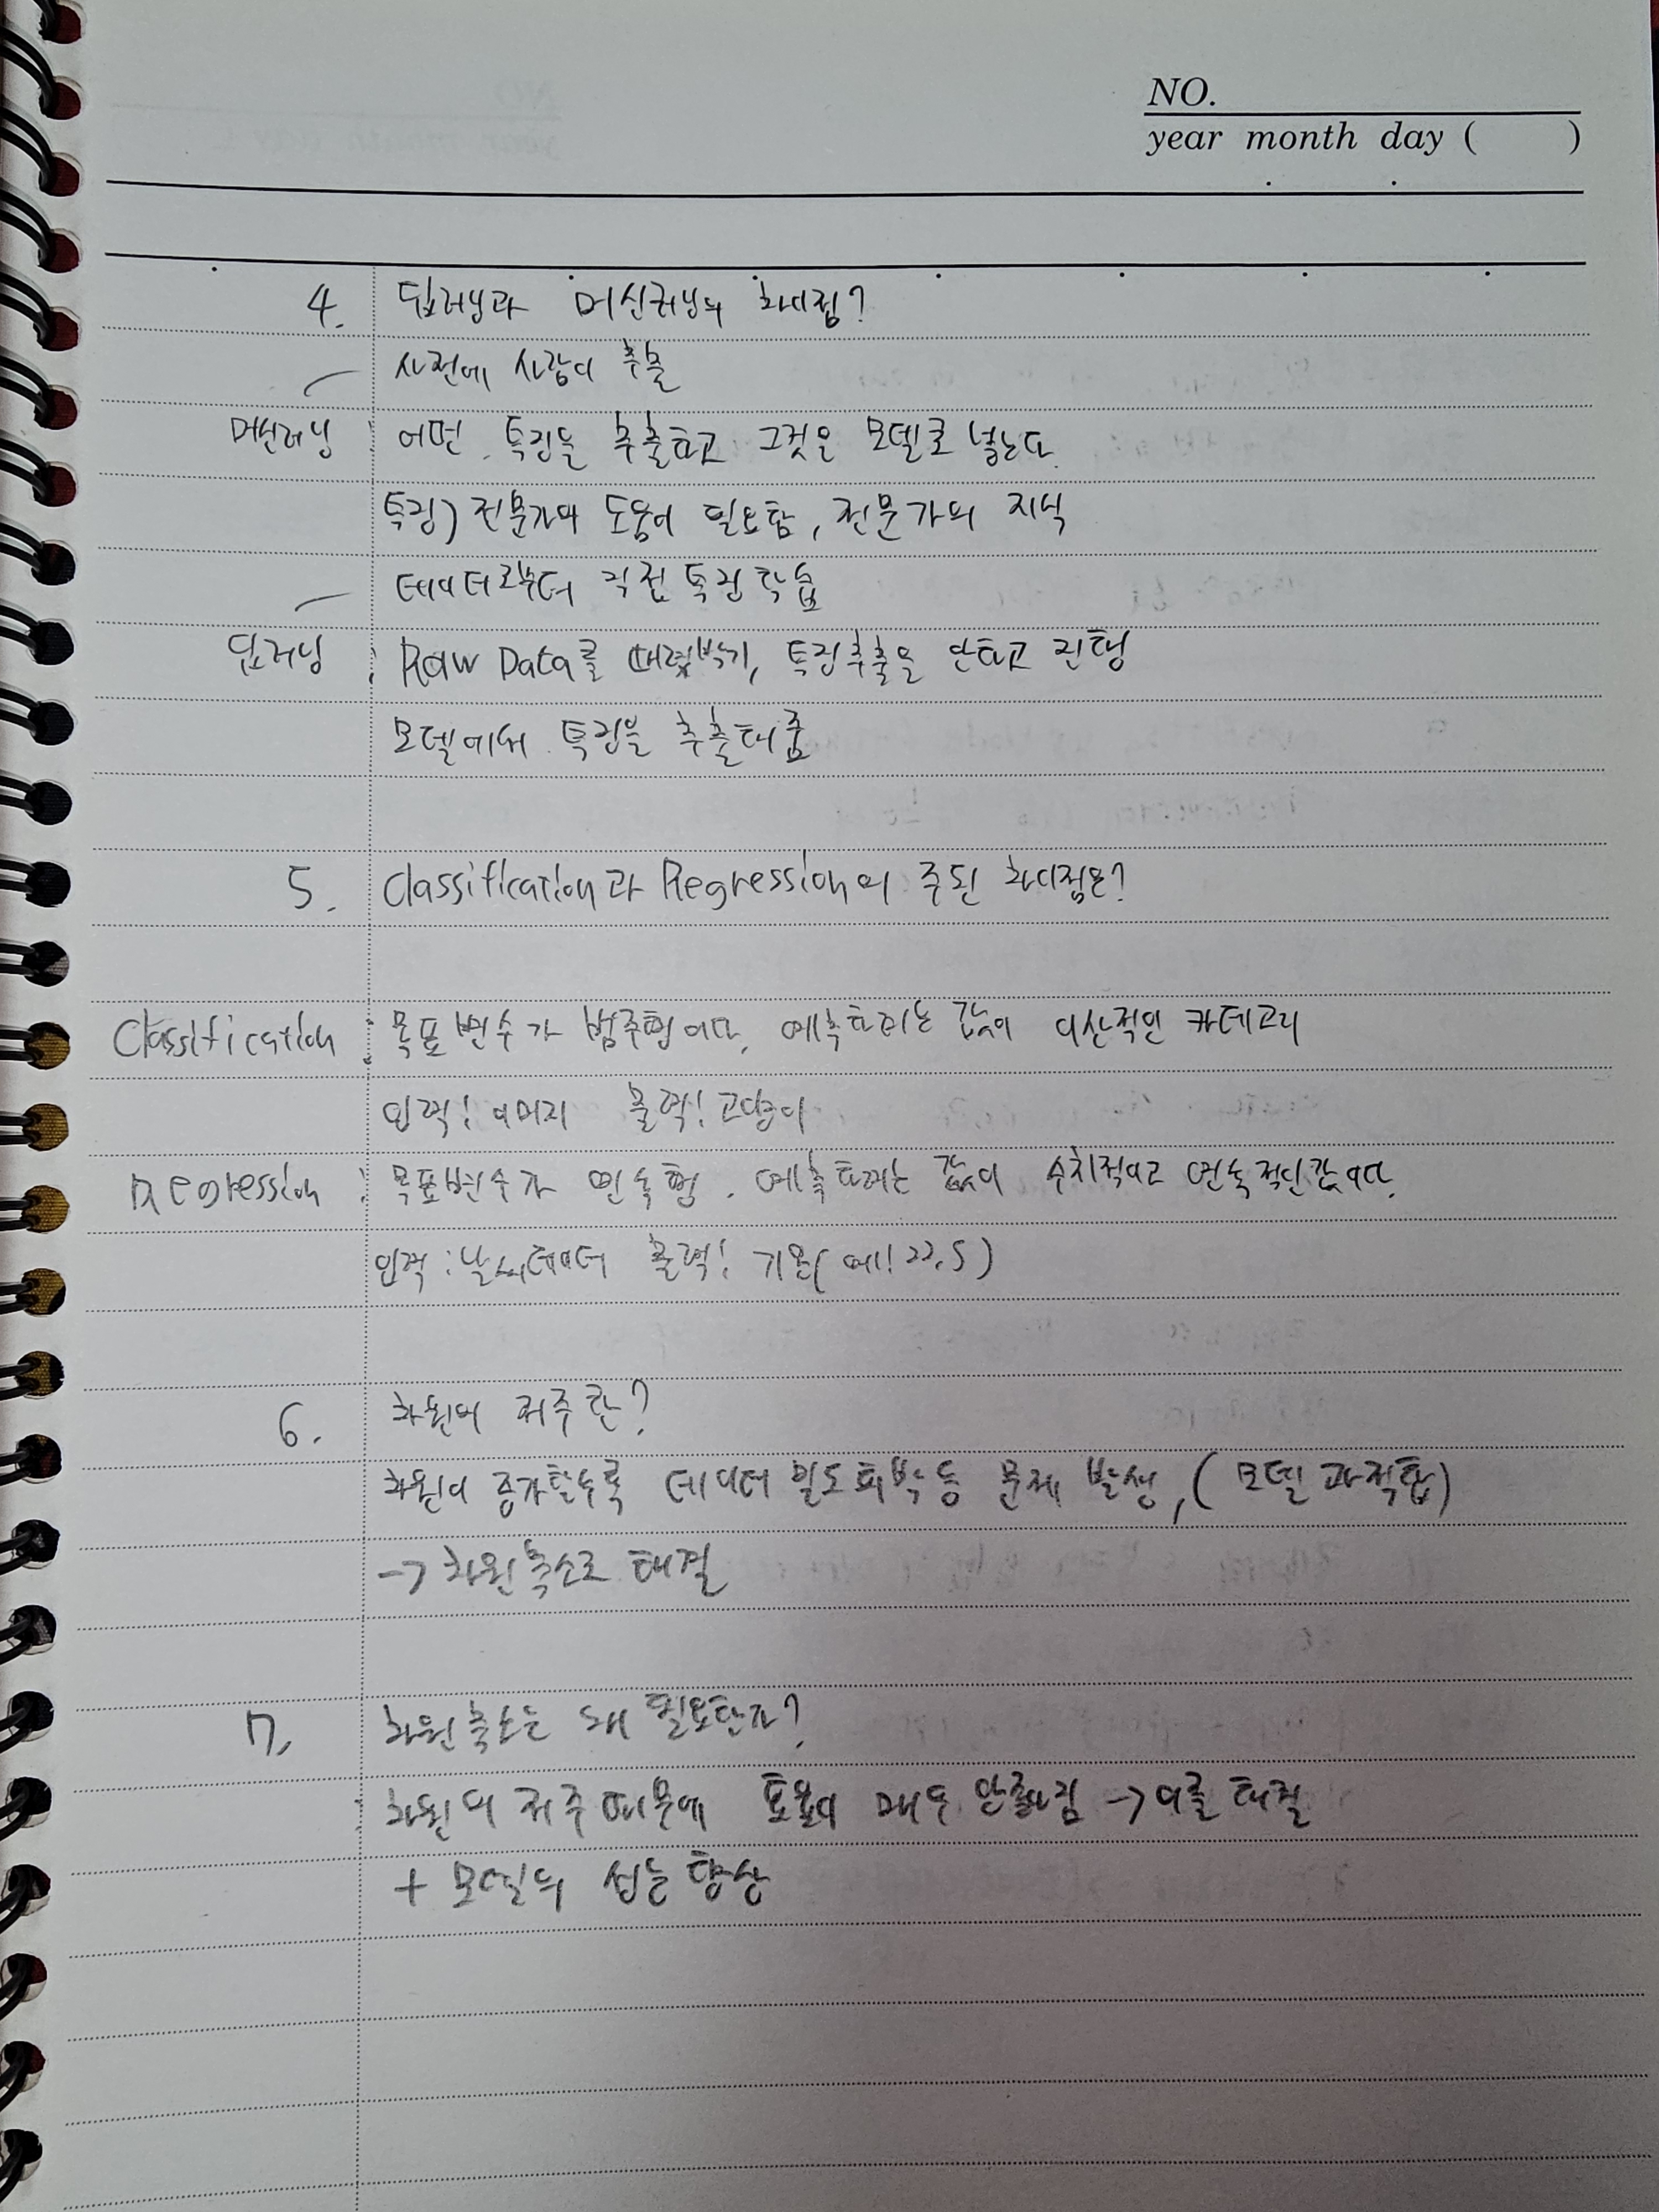 NO.
year month day ( )
4. 딥러닝과 머신러닝의 차이점?
사전에 사람이 추출
머신러닝 : 어떤 특징을 추출하고 그것을 모델로 넣는다.
특징) 전문가의 도움이 필요함, 전문가의 지식
데이터로부터 직접 특징 학습
딥러닝 : Raw Data를 때려박기, 특징추출을 안하고 진행
모델에서 특징을 추출해줌
5. Classification과 Regression의 주된 차이점은?
Classification : 목표변수가 범주형이다. 예측하려는 값이 이산적인 카테고리
입력: 이미지 출력: 고양이
Regression : 목표변수가 연속형. 예측하려는 값이 수치적이고 연속적인 값이다.
입력: 날씨데이터 출력: 기온(예: 22.5)
6. 차원의 저주란?
차원이 증가할수록 데이터 밀도 희박 등 문제 발생, (모델 과적합)
→ 차원축소로 해결
7. 차원축소는 왜 필요한가?
차원의 저주 때문에 효율이 매우 안좋아짐 → 이를 해결
+ 모델의 성능 향상